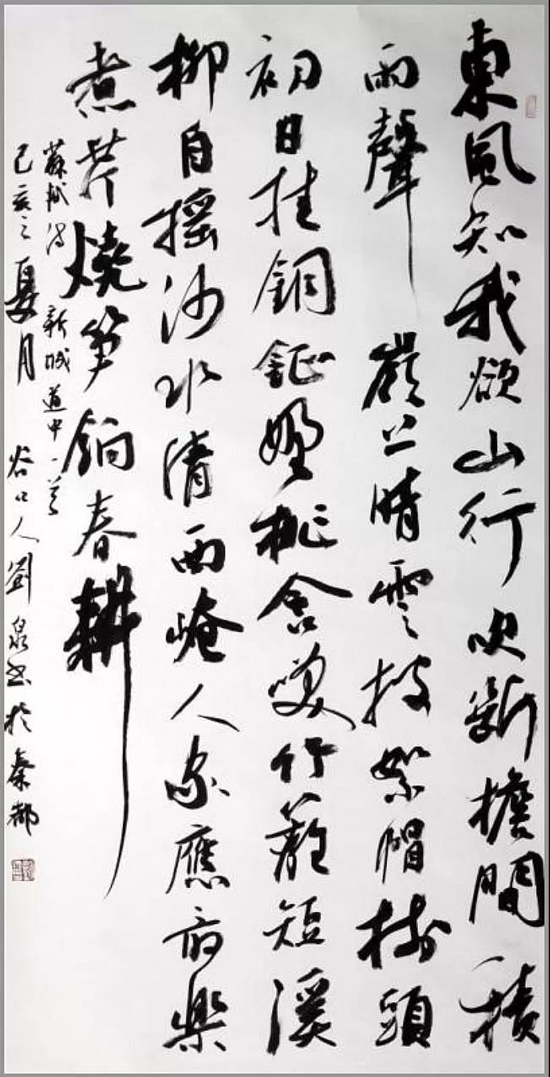 東風知我欲山行吹斷檐間積
雨聲 嶺上晴雲披絮帽樹頭
初日挂銅鉦野桃含笑竹籬短溪
柳自搖沙水清西崦人家應最樂
煮芹燒笋餉春耕
蘇軾詩 新城道中一首
己亥之夏月 谷口人劉泉書於秦都